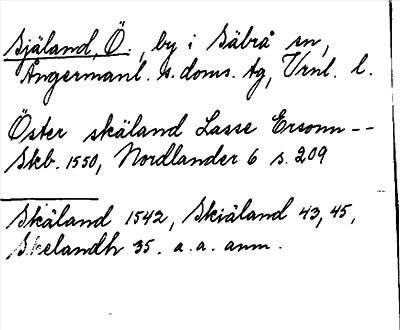 Själand, Ö., by i Säbrå sn,
Ångermanl. s. doms. tg, Vrnl. l.
Öster skäland Lasse Ersonn --
Skb. 1550, Nordlander 6 s. 209
Skäland 1542, Skiäland 43, 45,
Skelandh 35. a. a. anm.